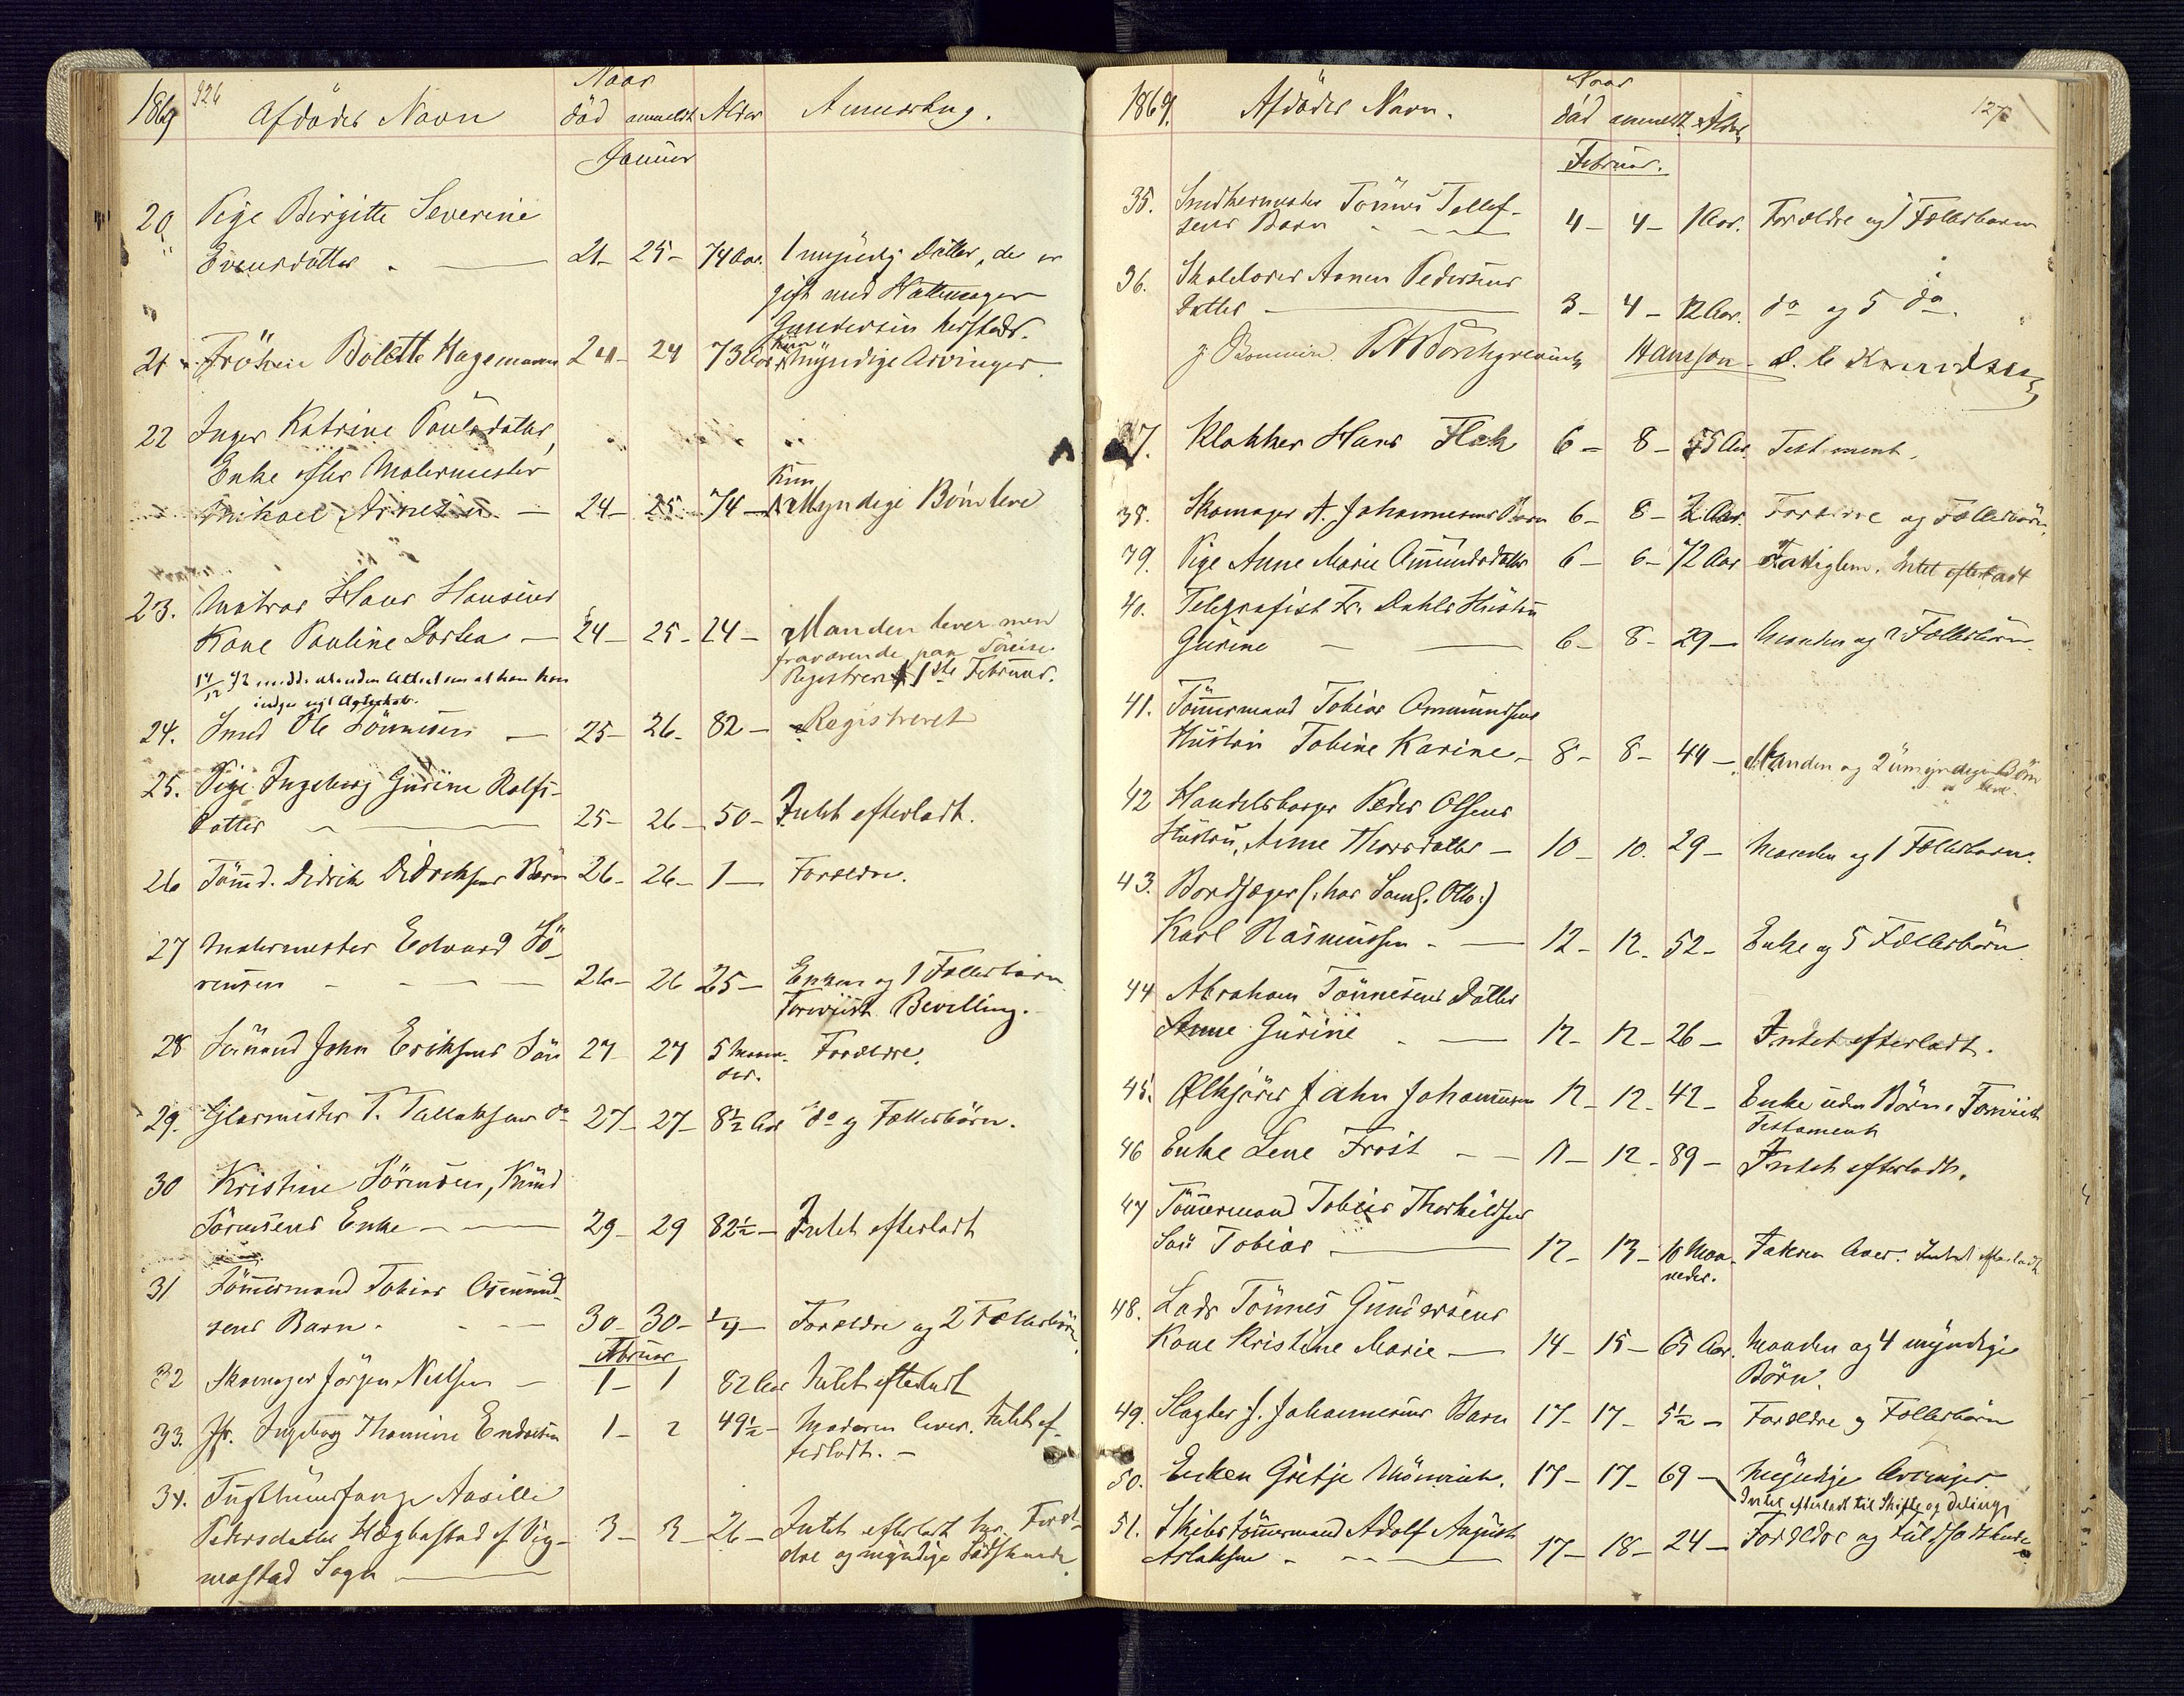 1869 926 Afdödes Navn Naar
död anmeldt Alder Anmærkng.
Januar
20. Pige Birgitte Severine
Evensdatter - — 21- 25- 74 Aar. 1 myndig Datter, der er
gift med Hattemager
Gundersen herstads.
21 Fröken Bolette Hagemann 24- 24 73 Aar kun myndige Arvinger.
22 Inger Katrine Paulsdatter,
Enke efter Malermester
Mikael Arnesen — 24- 25- 74- Kun Myndige Börn leve
23. Matros Hans Hansens
Kone Pauline Dorthea — 24- 25- 24- Manden lever men
fraværende paa Söreise.
Registreret 1ste Februar.
24. Smed Ole Tönnesen — 25- 26- 82- Registreret
25. Pige Ingeborg Gurine Rolfs-
datter — 25- 26- 50- Intet efterladt.
26 Tömd. Didrik Didriksens Barn 26- 26- 1- Forældre.
27 Malermester Edvard Sö-
rensen - - - 26- 26 25- Enken og 1 Fællesbarn
Forevist Bevilling.
28 Sömand John Eriksens Sön 27- 27 5 Maan-
der. Forældre.
29. Glarmester T. Tallaksens do 27- 27- 8½ Aar do og Fællesbörn.
30 Kristine Sörensen, Knud
Sörensens Enke - — 29- 29 82½- Intet efterladt
31 Tömmermand Tobias Osmund-
sens Barn - - - 30- 30- ¼- Forældre og 2 Fællesbörn
Februar
32 Skomager Jörgen Nielsen — 1- 1 82 Aar Intet efterladt
33. Jfr. Ingeborg Thomine Endresen 1- 2 49½- Moderen lever. Intet ef-
terladt. -
34. Tugthusfange Aasille
Pedersdatter Hægbostad af Vig- 3- 3- 26- Intet efterladt har Foræl-
dre og myndige Södskende
mostad Sogn —
1869. Afdödes Navn. Naar
död anmeldt Alder 127
Februar.
35. Snedkermester Tönnes Tellef-
sens Barn - - - 4- 4- 1 Aar. Forældre og 1 Fællesbarn
36. Skolelærer Aanen Pedersens
Datter — 3- 4- 12 Aar. do og 5 do.
Hansson - Knudsen
37. Klokker Hans Flak 6- 8- Aar. Testament.
38. Skomager A. Johannesens Barn 6- 8- 2 Aar. Forældre og Fællesbörn.
39. Pige Anne Marie Omundsdatter 6- 6- 72 Aar Fattiglem. Intet efterladt
40. Telegrafist Fr. Dahls Hustru
Gurine - — 6- 8- 29- Manden og 2 Fællesbörn.
41. Tömmermand Tobias Ommundsens
Hustru Tobine Karine - 8- 8- 44- Manden og 2 umyndige Börn
leve.
42 Handelsborger Peder Olsens
Hustru, Anne Thorsdatter - 10- 10. 29- Manden og 1 Fællesbarn.
43. Bordsæger (: hos Saml. Otto :)
Karl Rasmussen - — 12- 12- 52- Enke og 5 Fællesbörn.
44 Abraham Tönnesens Datter
Anne Gurine - — 12- 12- 26- Intet efterladt.
45. Ølkjörer Jahn Johannesen 12- 12- 42- Enke uden Börn. Forevist
Testament
46 Enke Lene Frost - - 11- 12- 89- Intet efterladt.
47 Tömmermand Tobias Thorkildsens
Sön Tobias — 12- 13- 10 Maa-
neder. Faderen lever. Intet efterladt
48. Lods Tönnes Gundersens
Kone Kristine Marie — 14- 15- 65 Aar. Manden og 4 myndige
Börn.
49. Slagter J. Johannesens Barn 17- 17- 5½- Forældre og Fællesbörn
50. Enken Gietje Mönnich. 17- 17- 69- Myndige Arvinger
Intet efterladt til Skifte og Deling
51. Skibstömmermand Adolf August
Aslaksen - - — 17- 18- 24- Forældre og Fuldsödskende